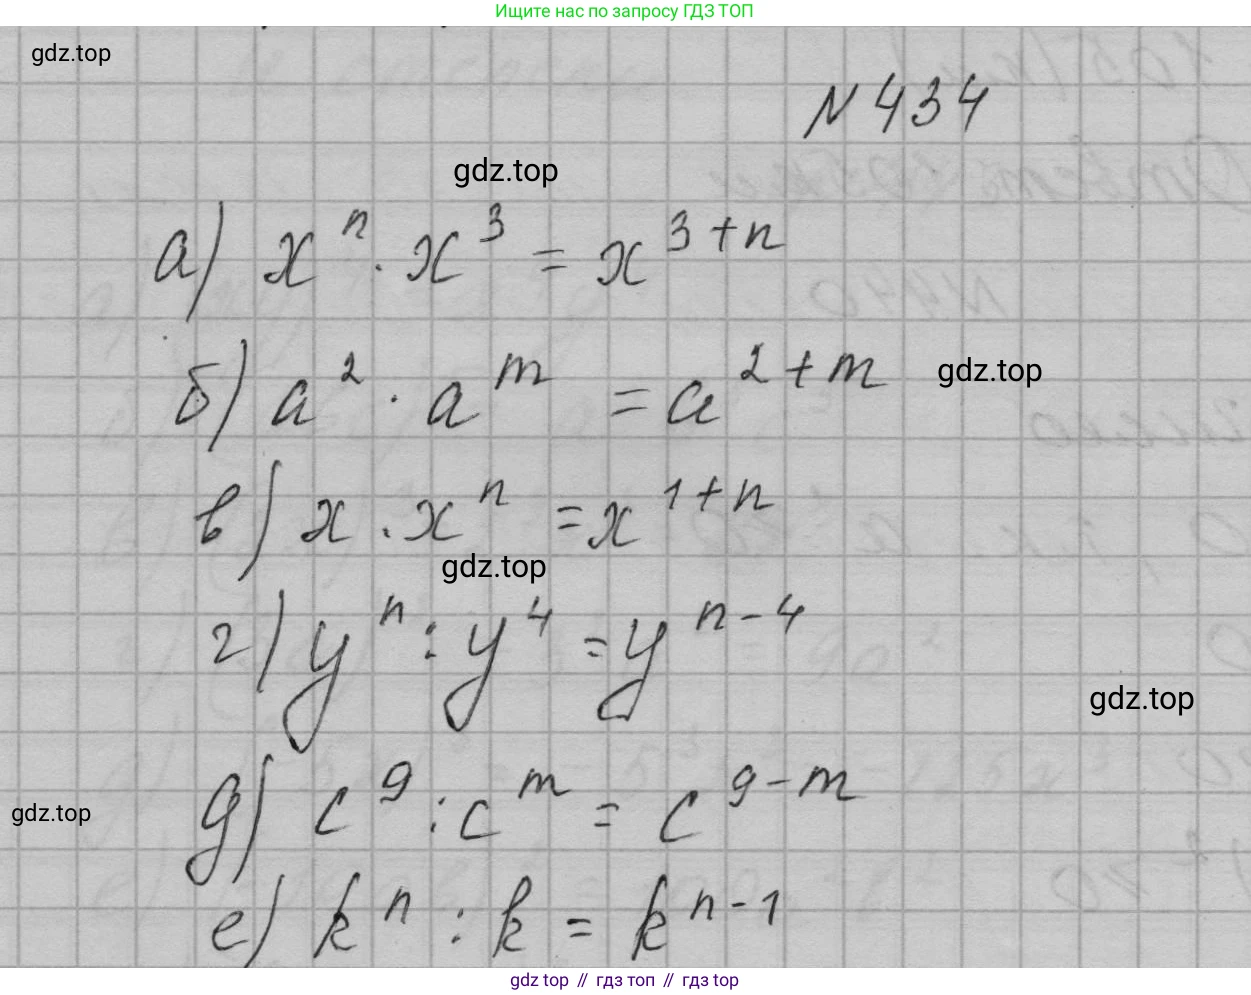 Ищите нас по запросу ГДЗ ТОП
gdz.top
N 434
gdz.top
а) xⁿ · x³ = x³⁺ⁿ
б) a² · aᵐ = a²⁺ᵐ
gdz.top
в) x · xⁿ = x¹⁺ⁿ
gdz.top
г) yⁿ : y⁴ = yⁿ⁻⁴
gdz.top
д) c⁹ : cᵐ = c⁹⁻ᵐ
gdz.top
е) kⁿ : k = kⁿ⁻¹
gdz top // гдз топ // gdz top